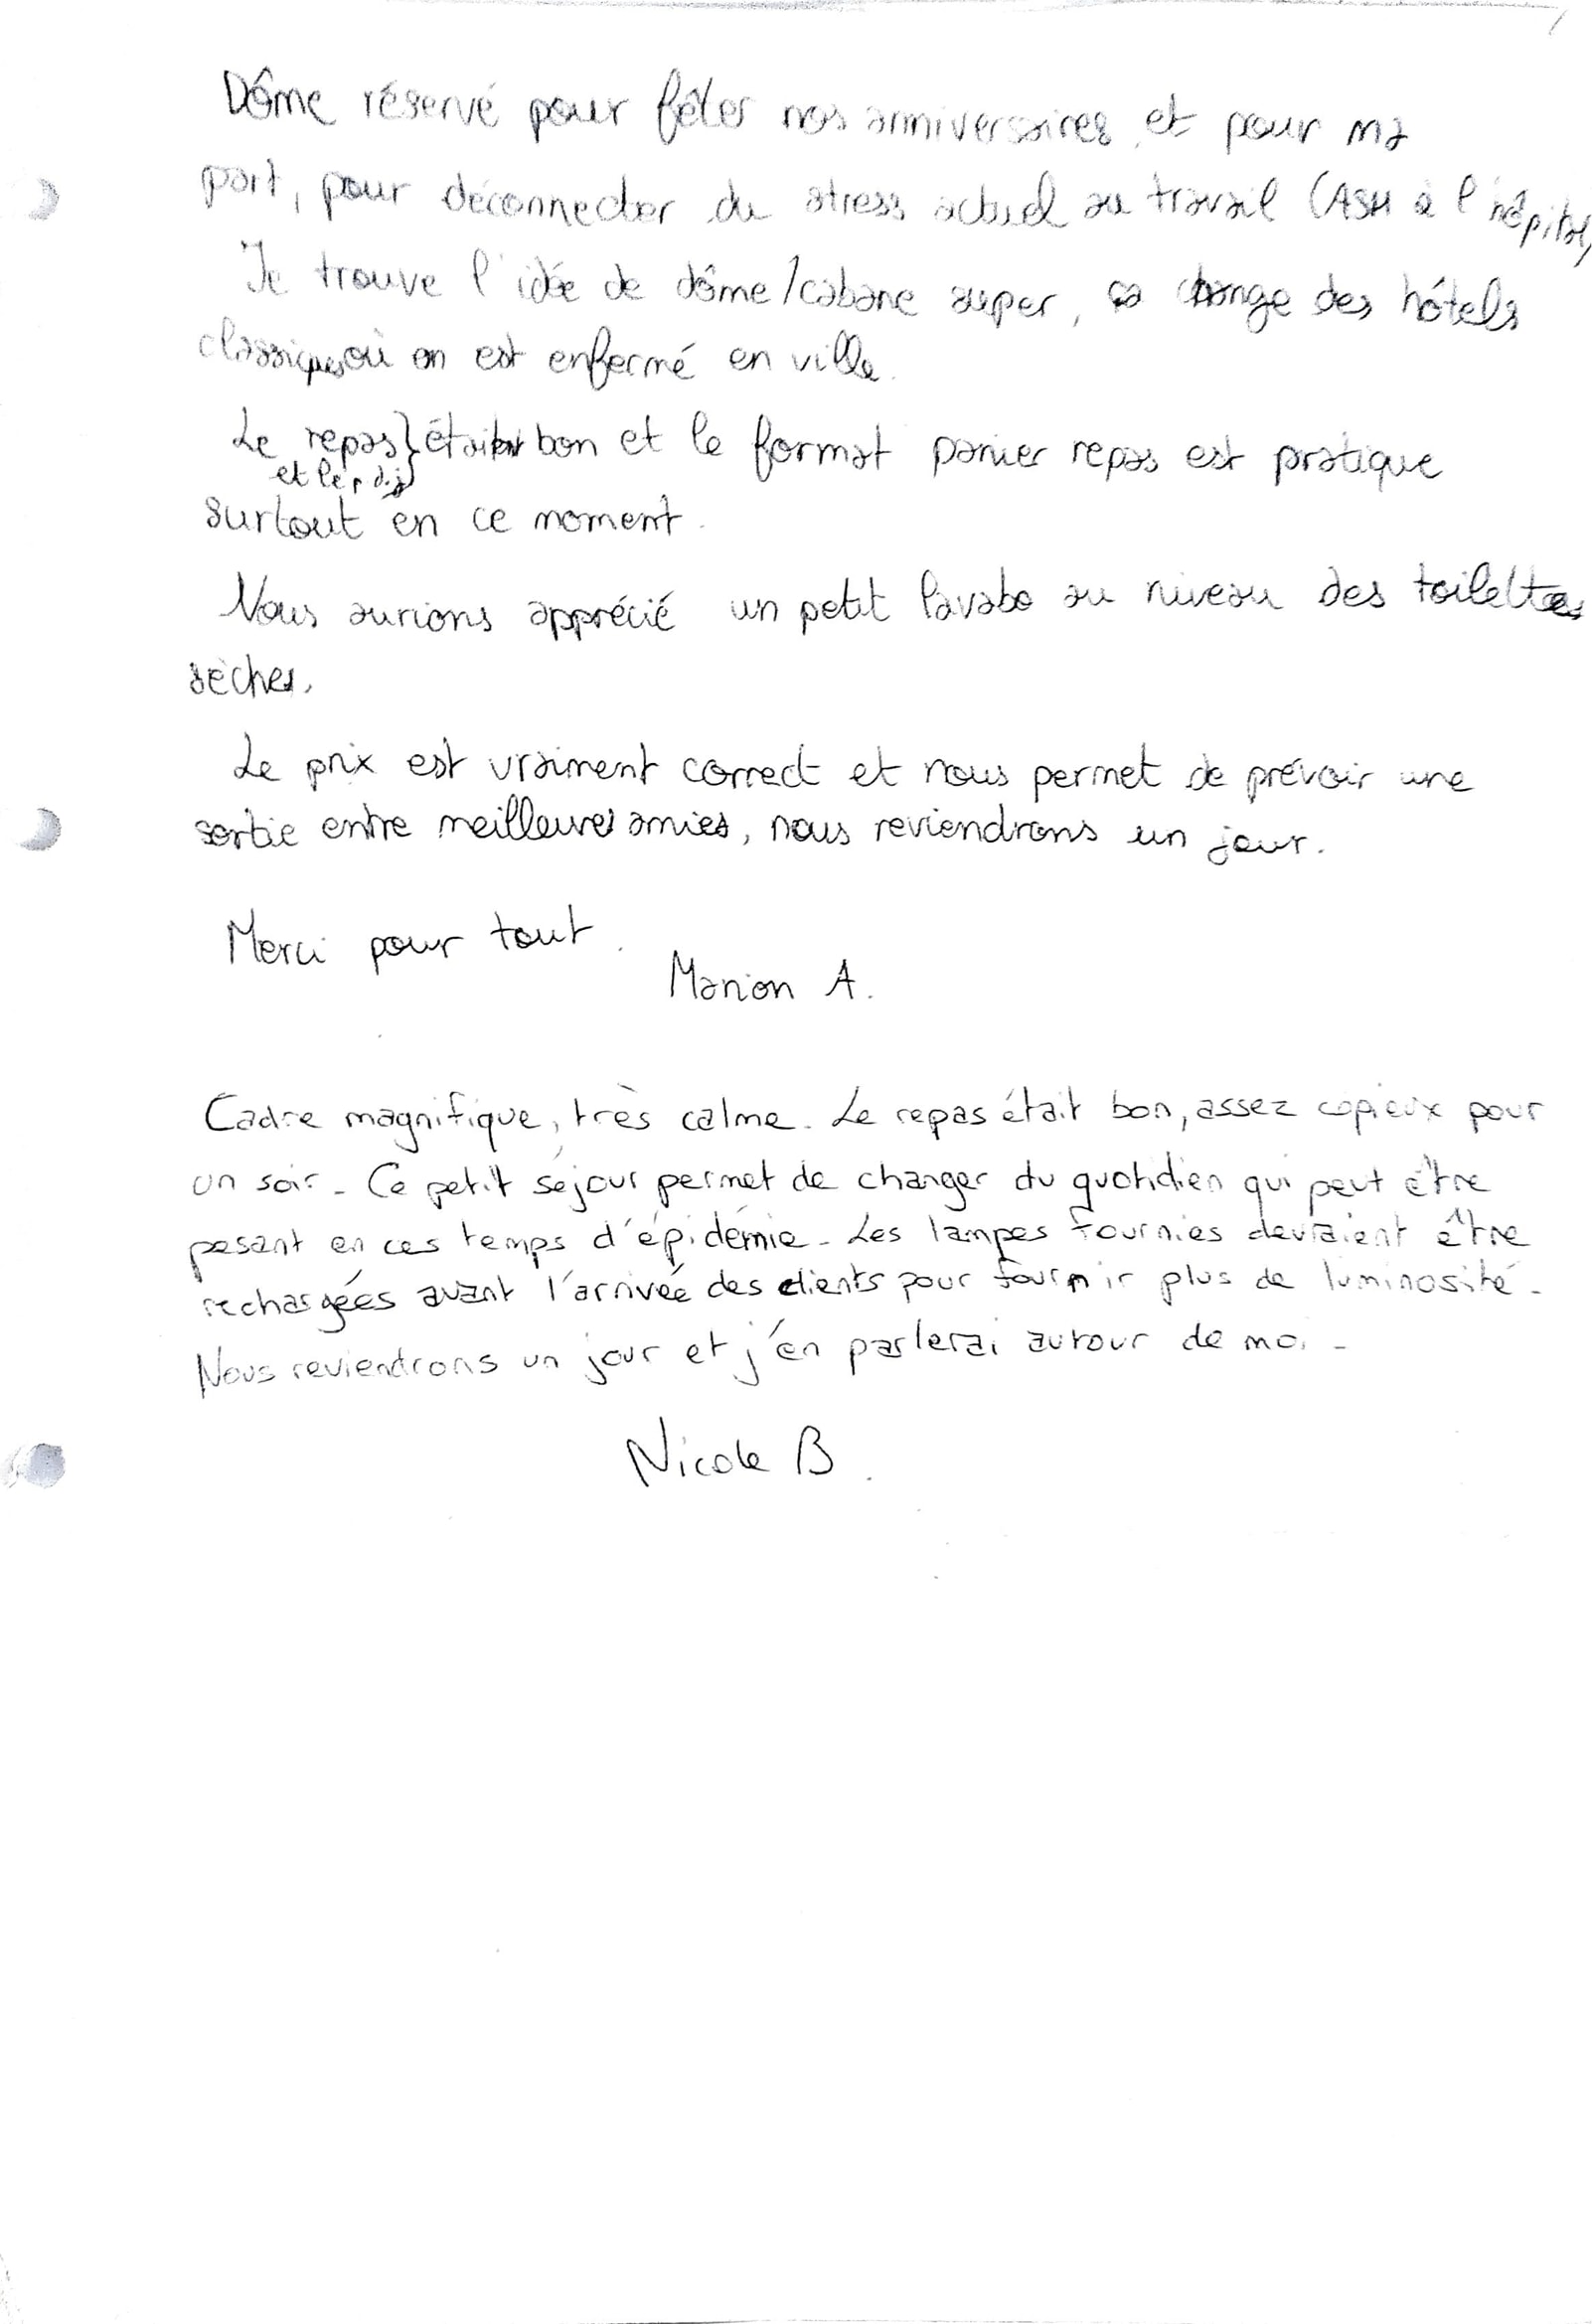 Dôme réservé pour fêter nos anniversaires et pour ma
part, pour déconnecter du stress actuel au travail (ASH à l'hôpital)
Je trouve l'idée de dôme/cabane super, ça change des hôtels
classiques où on est enfermé en ville.
Le repas } étaient bon et le format panier repas est pratique
et le p dèj
surtout en ce moment.
Nous aurions apprécié un petit lavabo au niveau des toilettes
sèches.
Le prix est vraiment correct et nous permet de prévoir une
sortie entre meilleures amies, nous reviendrons un jour.
Merci pour tout.
Marion A.
Cadre magnifique, très calme. Le repas était bon, assez copieux pour
un soir. Ce petit séjour permet de changer du quotidien qui peut être
pesant en ces temps d'épidémie. Les lampes fournies devraient être
rechargées avant l'arrivée des clients pour fournir plus de luminosité.
Nous reviendrons un jour et j'en parlerai autour de moi.
Nicole B.